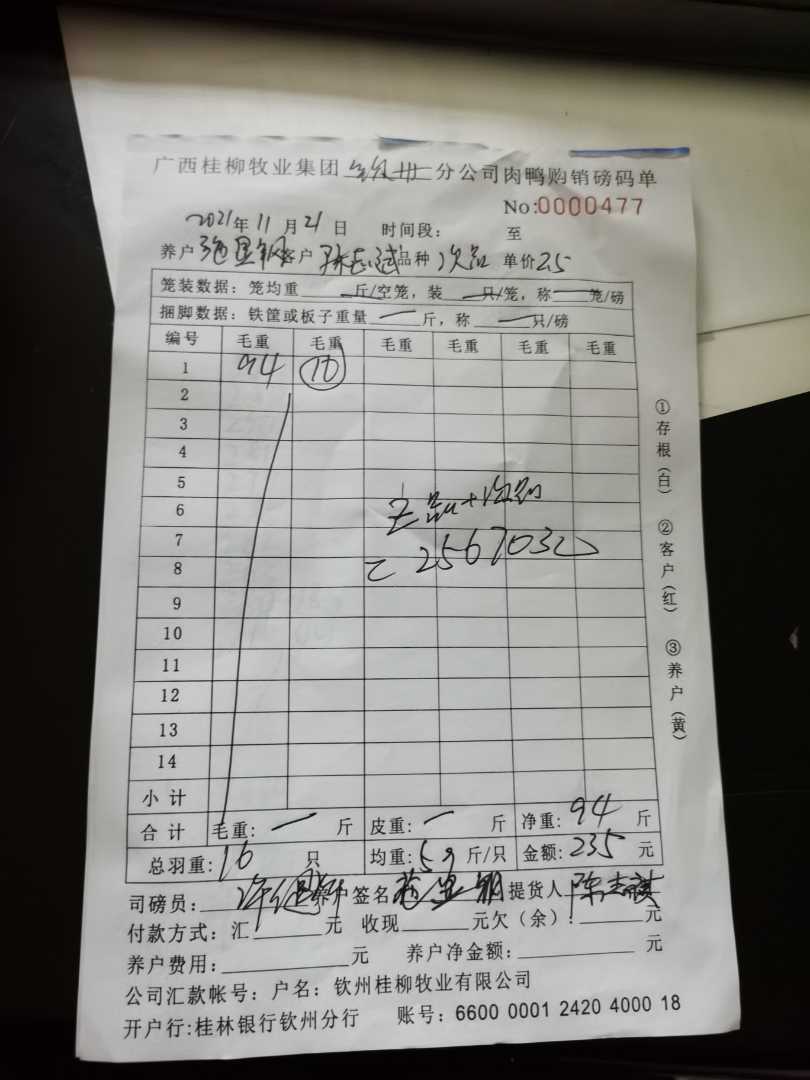 广西桂柳牧业集团钦州分公司肉鸭购销磅码单
No:0000477
2021年11月21日 时间段: 至
养户 客户 品种 次品 单价2.5
笼装数据: 笼均重 斤/空笼, 装 只/笼, 称 笼/磅
捆脚数据: 铁筐或板子重量 斤, 称 只/磅
编号 毛重 毛重 毛重 毛重 毛重 毛重
1 94
2
3
4
5
6
正品+次品
7
=25670元
8
9
10
11
12
13
14
小计
合计 毛重: 斤 皮重: 斤 净重: 94 斤
总羽重: 16 只 均重: 5.9 斤/只 金额: 235 元
司磅员: 签名 提货人
付款方式: 汇 元 收现 元欠(余): 元
养户费用: 元 养户净金额: 元
公司汇款帐号: 户名: 钦州桂柳牧业有限公司
开户行:桂林银行钦州分行 账号: 6600 0001 2420 4000 18
①存根(白) ②客户(红) ③养户(黄)